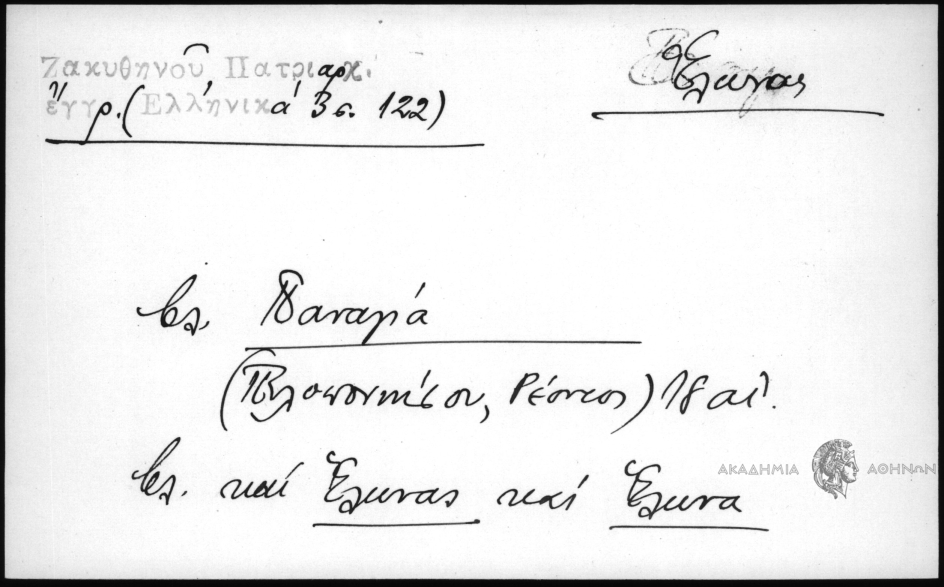 Ζακυθηνοῦ Πατριαρχ.
ἔγγρ. (Ἑλληνικά 3 σ. 122)
Ἔλωνας
βλ. Παναγιά
(Πελοποννήσου, Ρέοντος) 18 αἰ.
βλ. καί Ἔλωνας καί Ἔλωνα
ΑΚΑΔΗΜΙΑ ΑΘΗΝΩΝ